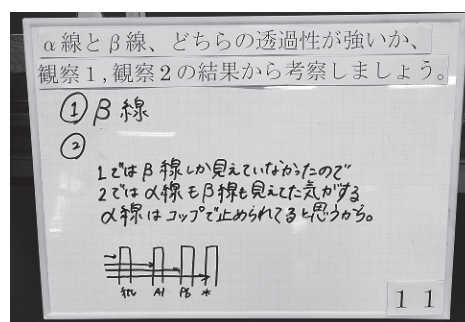 α線とβ線、どちらの透過性が強いか、
観察1,観察2の結果から考察しましょう。
① β線
②
1ではβ線しか見えていなかったので
2ではα線もβ線も見えてた気がする
α線はコップで止められてると思うから。
紙 Al Pb 水
11